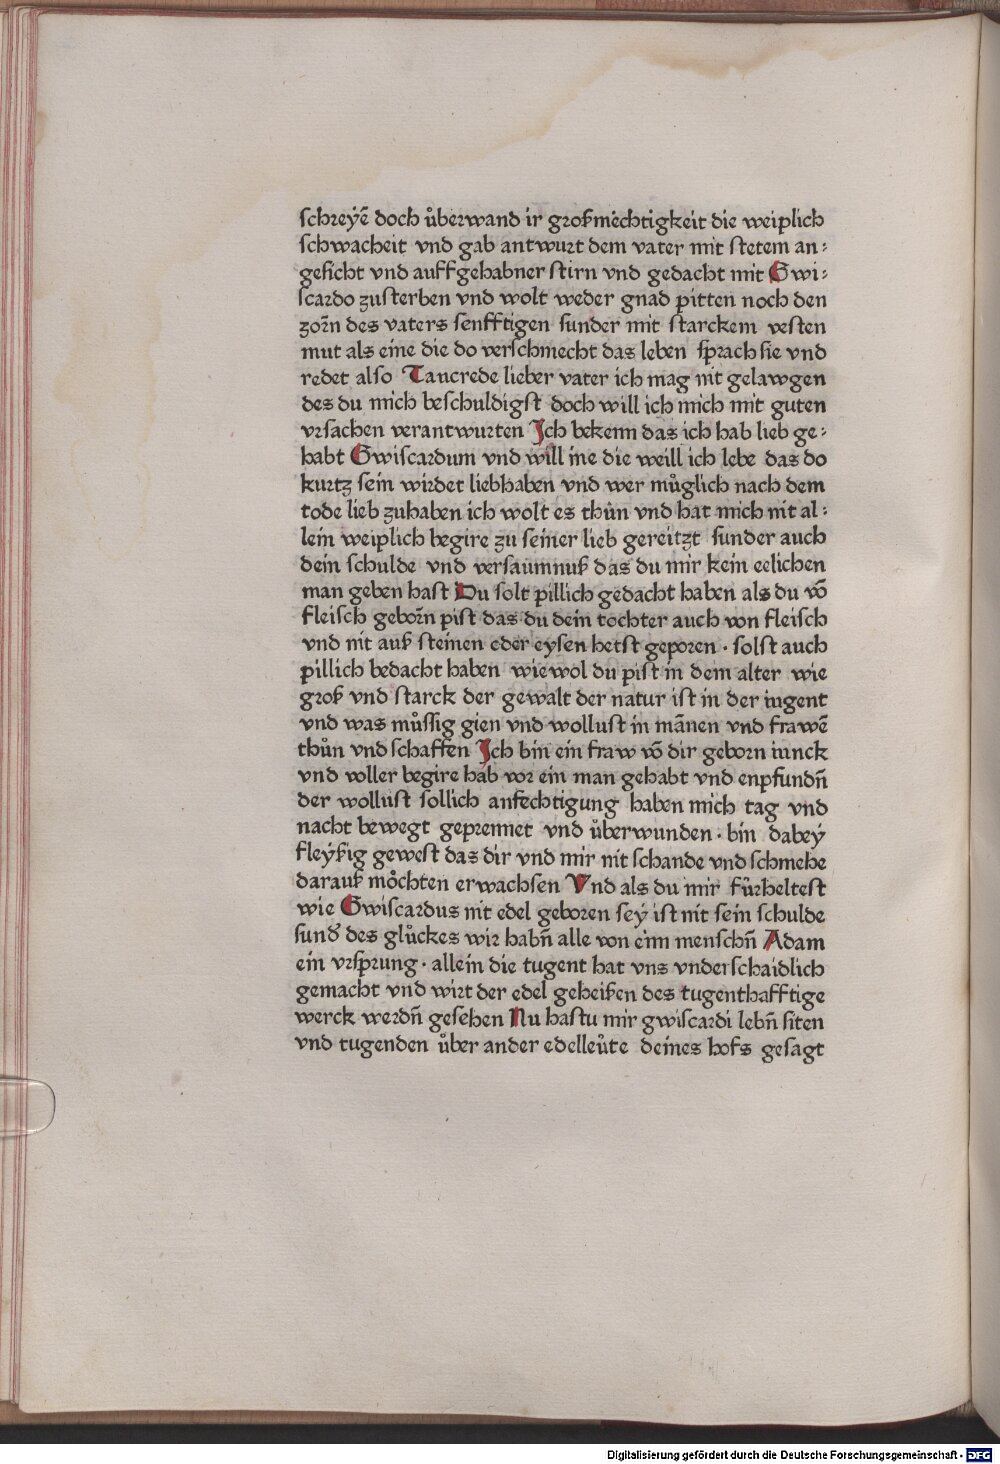 schreyē doch ůberwand ir großmechtigkeit die weiplich
schwacheit vnd gab antwurt dem vater mit stetem an:
gesicht vnd auffgehabner stirn vnd gedacht mit Gwi:
scardo zusterben vnd wolt weder gnad pitten noch den
zorn̄ des vaters senfftigen sunder mit starckem vesten
mut als eine die do verschmecht das leben sprach sie vnd
redet also Tancrede lieber vater ich mag nit gelawgen
des du mich beschuldigst doch will ich mich mit guten
vrsachen verantwurten Ich bekenn das ich hab lieb ge:
habt Gwiscardum vnd will ine die weill ich lebe das do
kurtz sein wirdet liebhaben vnd wer můglich nach dem
tode lieb zuhaben ich wolt es thůn vnd hat mich nit al:
lein weiplich begire zu seiner lieb gereitzt sunder auch
dein schulde vnd versaumnuß das du mir kein eelichen
man geben hast Du solt pillich gedacht haben als du vō
fleisch geborn̄ pist das du dein tochter auch von fleisch
vnd nit auß steinen oder eysen hetst geporen · solst auch
pillich bedacht haben wiewol du pist in dem alter wie
groß vnd starck der gewalt der natur ist in der iugent
vnd was můssig gien vnd wollust in mānen vnd frawē
thůn vnd schaffen Ich bin ein fraw vō dir geborn iunck
vnd voller begire hab vor ein man gehabt vnd enpfundn̄
der wollust sollich anfechtigung haben mich tag vnd
nacht bewegt geprennet vnd ůberwunden · bin dabey
fleyßig gewest das dir vnd mir nit schande vnd schmehe
darauß mȯchten erwachsen Vnd als du mir fůrheltest
wie Gwiscardus nit edel geboren sey ist nit sein schulde
sund' des glůckes wir habn̄ alle von eim menschn̄ Adam
ein vrsprung · allein die tugent hat vns vnderschaidlich
gemacht vnd wirt der edel geheißen des tugenthafftige
werck werdn̄ gesehen Nu hastu mir gwiscardi lebn̄ siten
vnd tugenden ůber ander edelleůte deines hofs gesagt
Digitalisierung gefördert durch die Deutsche Forschungsgemeinschaft - DFG